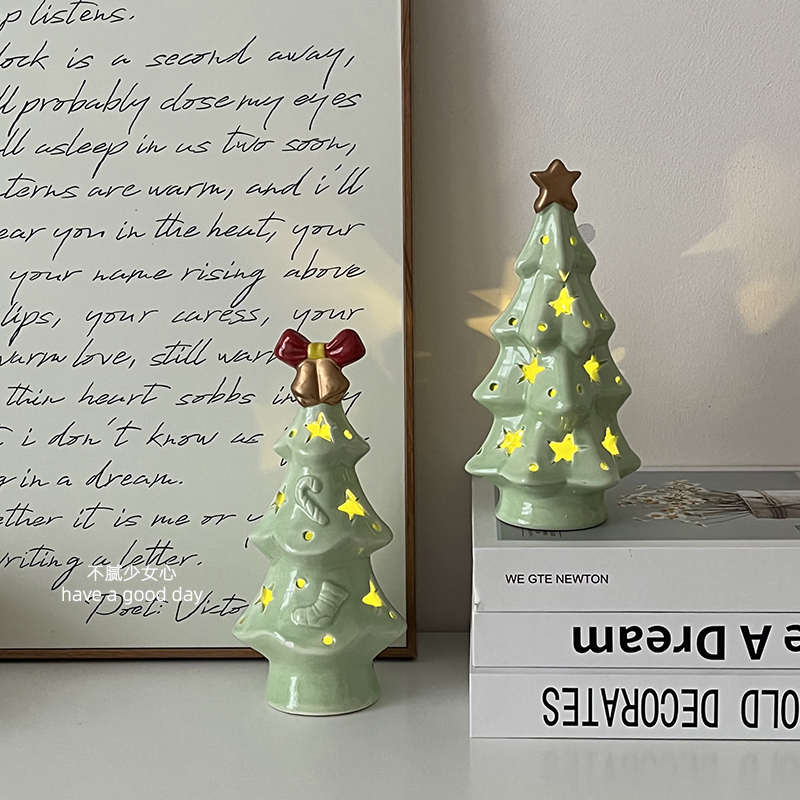 p listens.
lock is a second away,
ll probably close my eyes
ll asleep in us two soon,
terns are warm, and i'll
ear you in the heat, your
your name rising above
lips, your caress, your
warm love, still war
thin heart sobbs in y
t i don't know us i
g in a dream.
ether it is me or y
writing a letter.
Poet: Victo
不腻少女心
have a good day
WE GTE NEWTON
e A Dream
OLD DECORATES